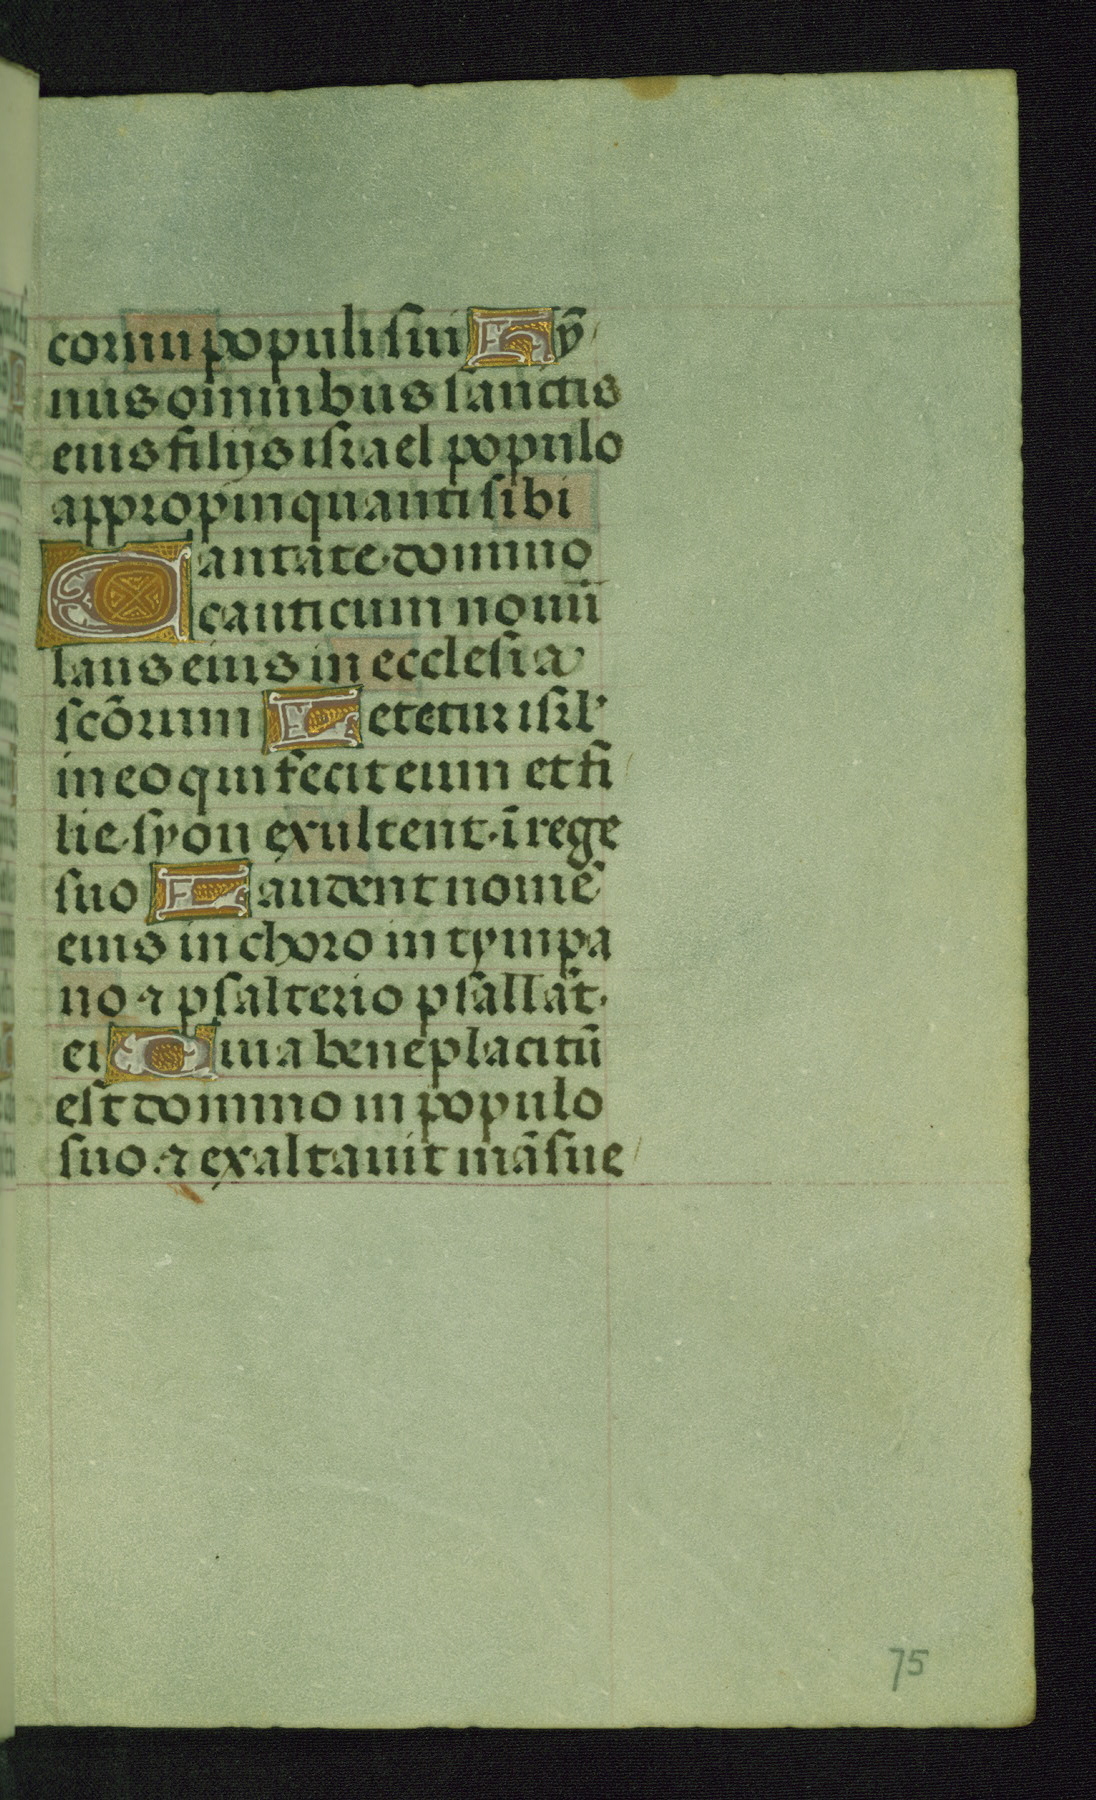 cornu populi sui Hỹ
nus omnibus sanctis
eius filijs israel populo
appropinquanti sibi
Cantate domino
canticum nouū
laus eius in ecclesia
scōrum Letetur isrl'
in eo qui fecit eum et fi
lie syon exultent ī rege
suo Laudent nomē
eius in choro in tympa
no ⁊ psalterio psallāt
ei Quia beneplacitū
est domino in populo
suo ⁊ exaltauit māsue
75